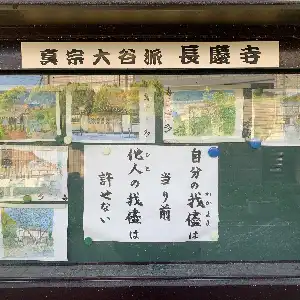 真宗大谷派 長慶寺
自分の我儘は
わがまま
当り前
他人の我儘は
ひと
許せない